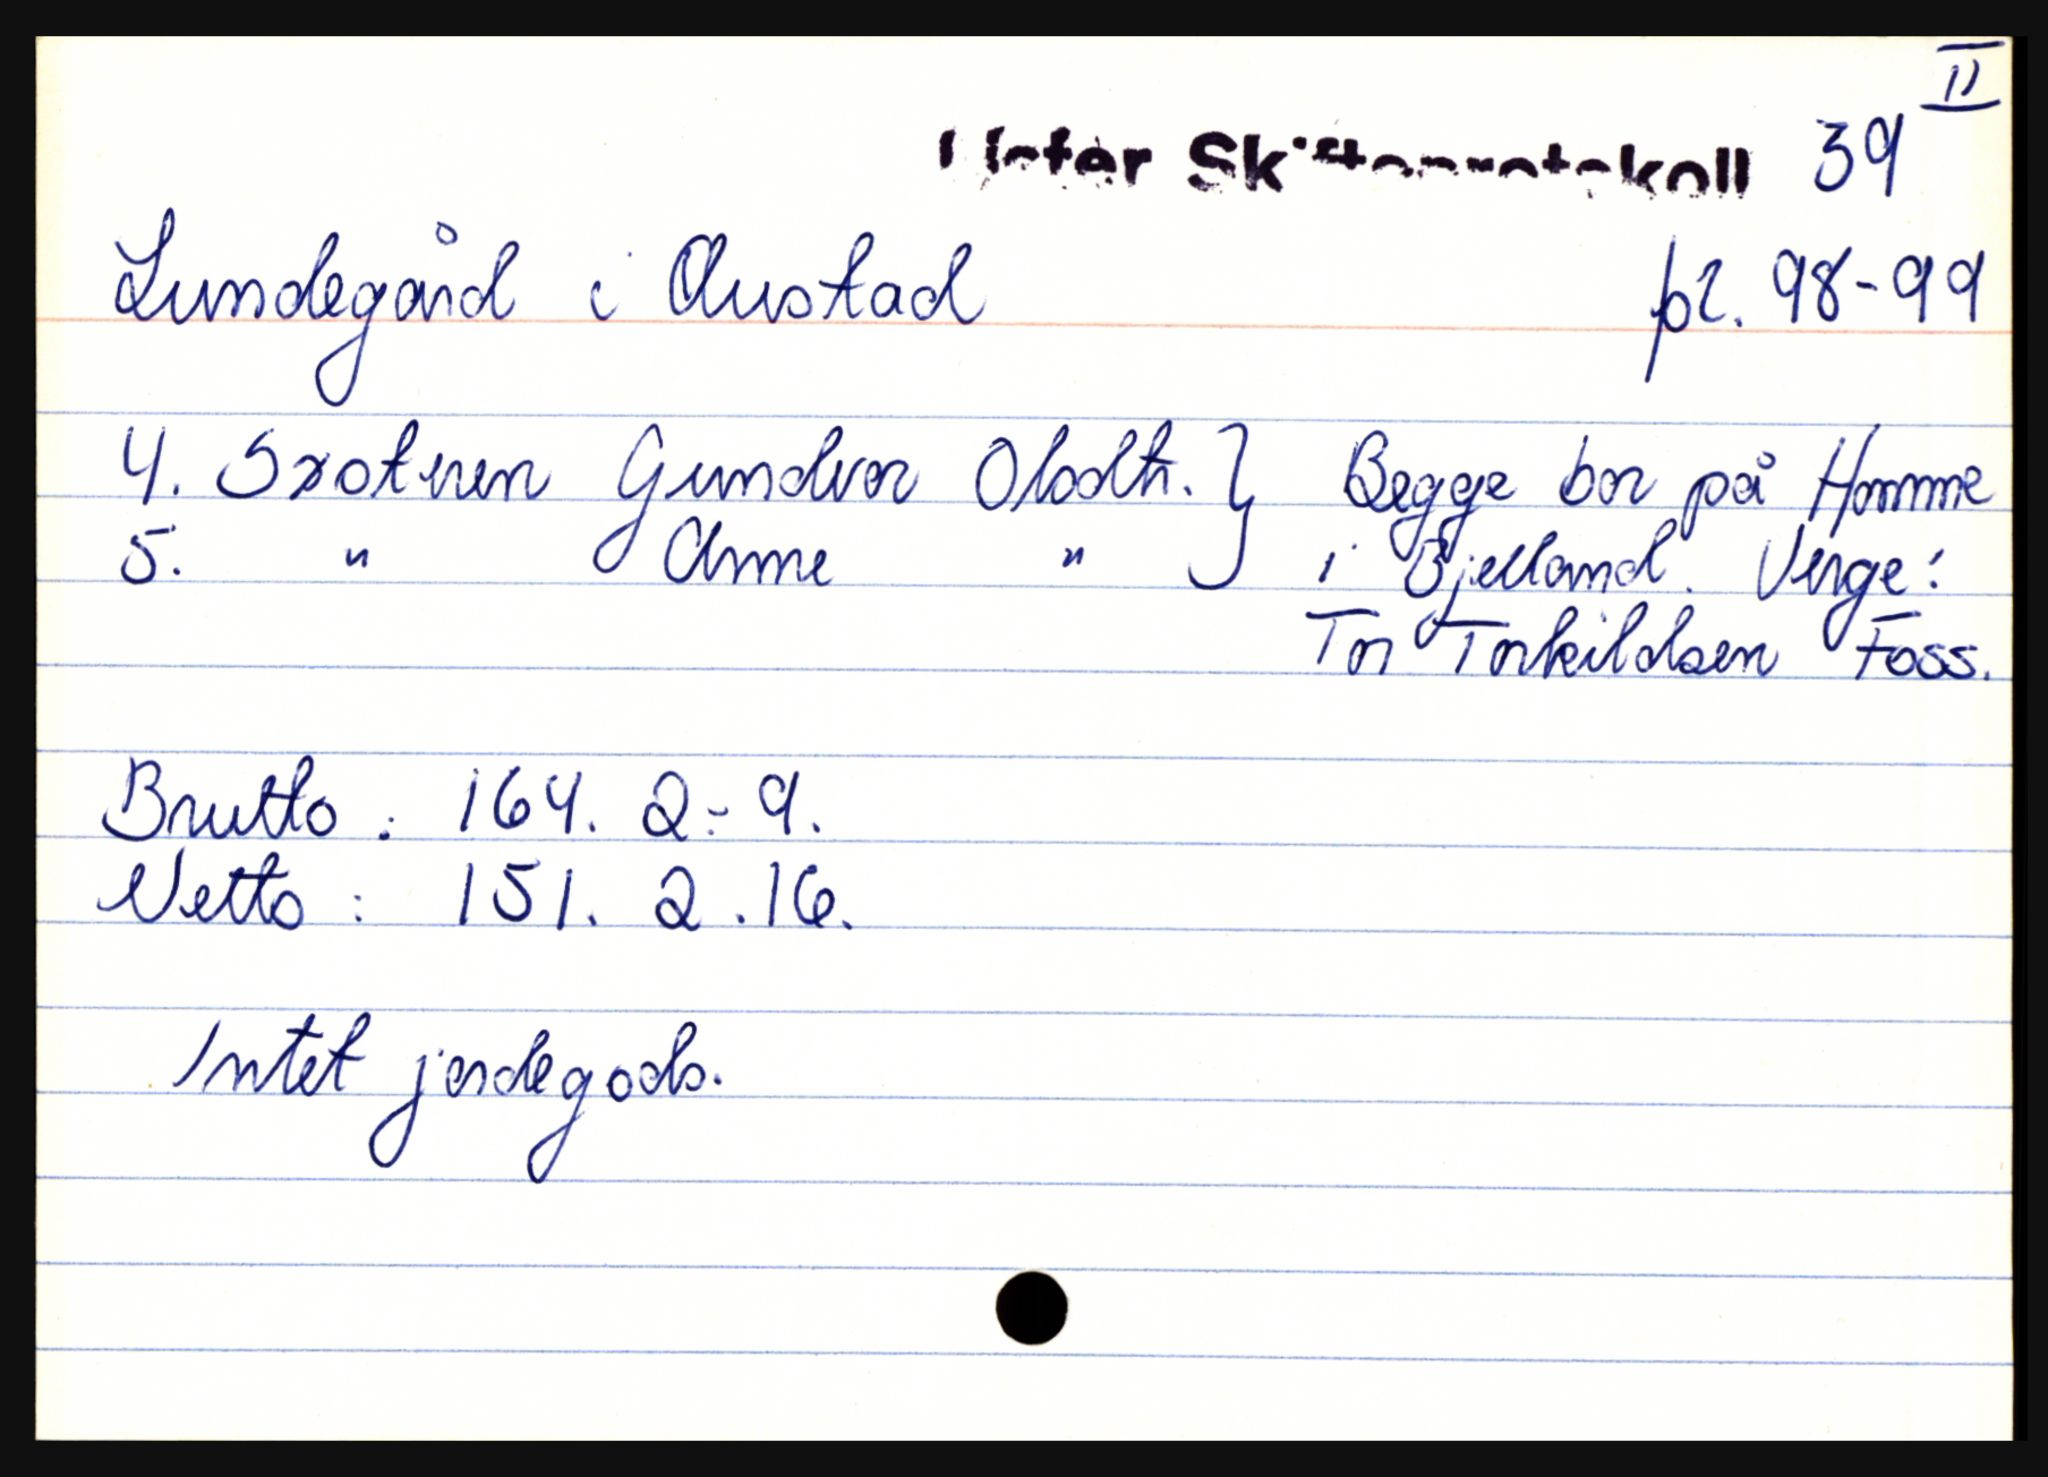 II
Lister Skifteprotokoll 39
Lundegård i Austad pr. 98-99
4. Søsteren Gundvor Olsdtr. } Begge bor på Homme
5. " Anne " i Bjelland. Verge:
Tor Torkildsen Foss.
Brutto: 164. 2: 9.
Netto: 151. 2. 16.
Intet jordegods.